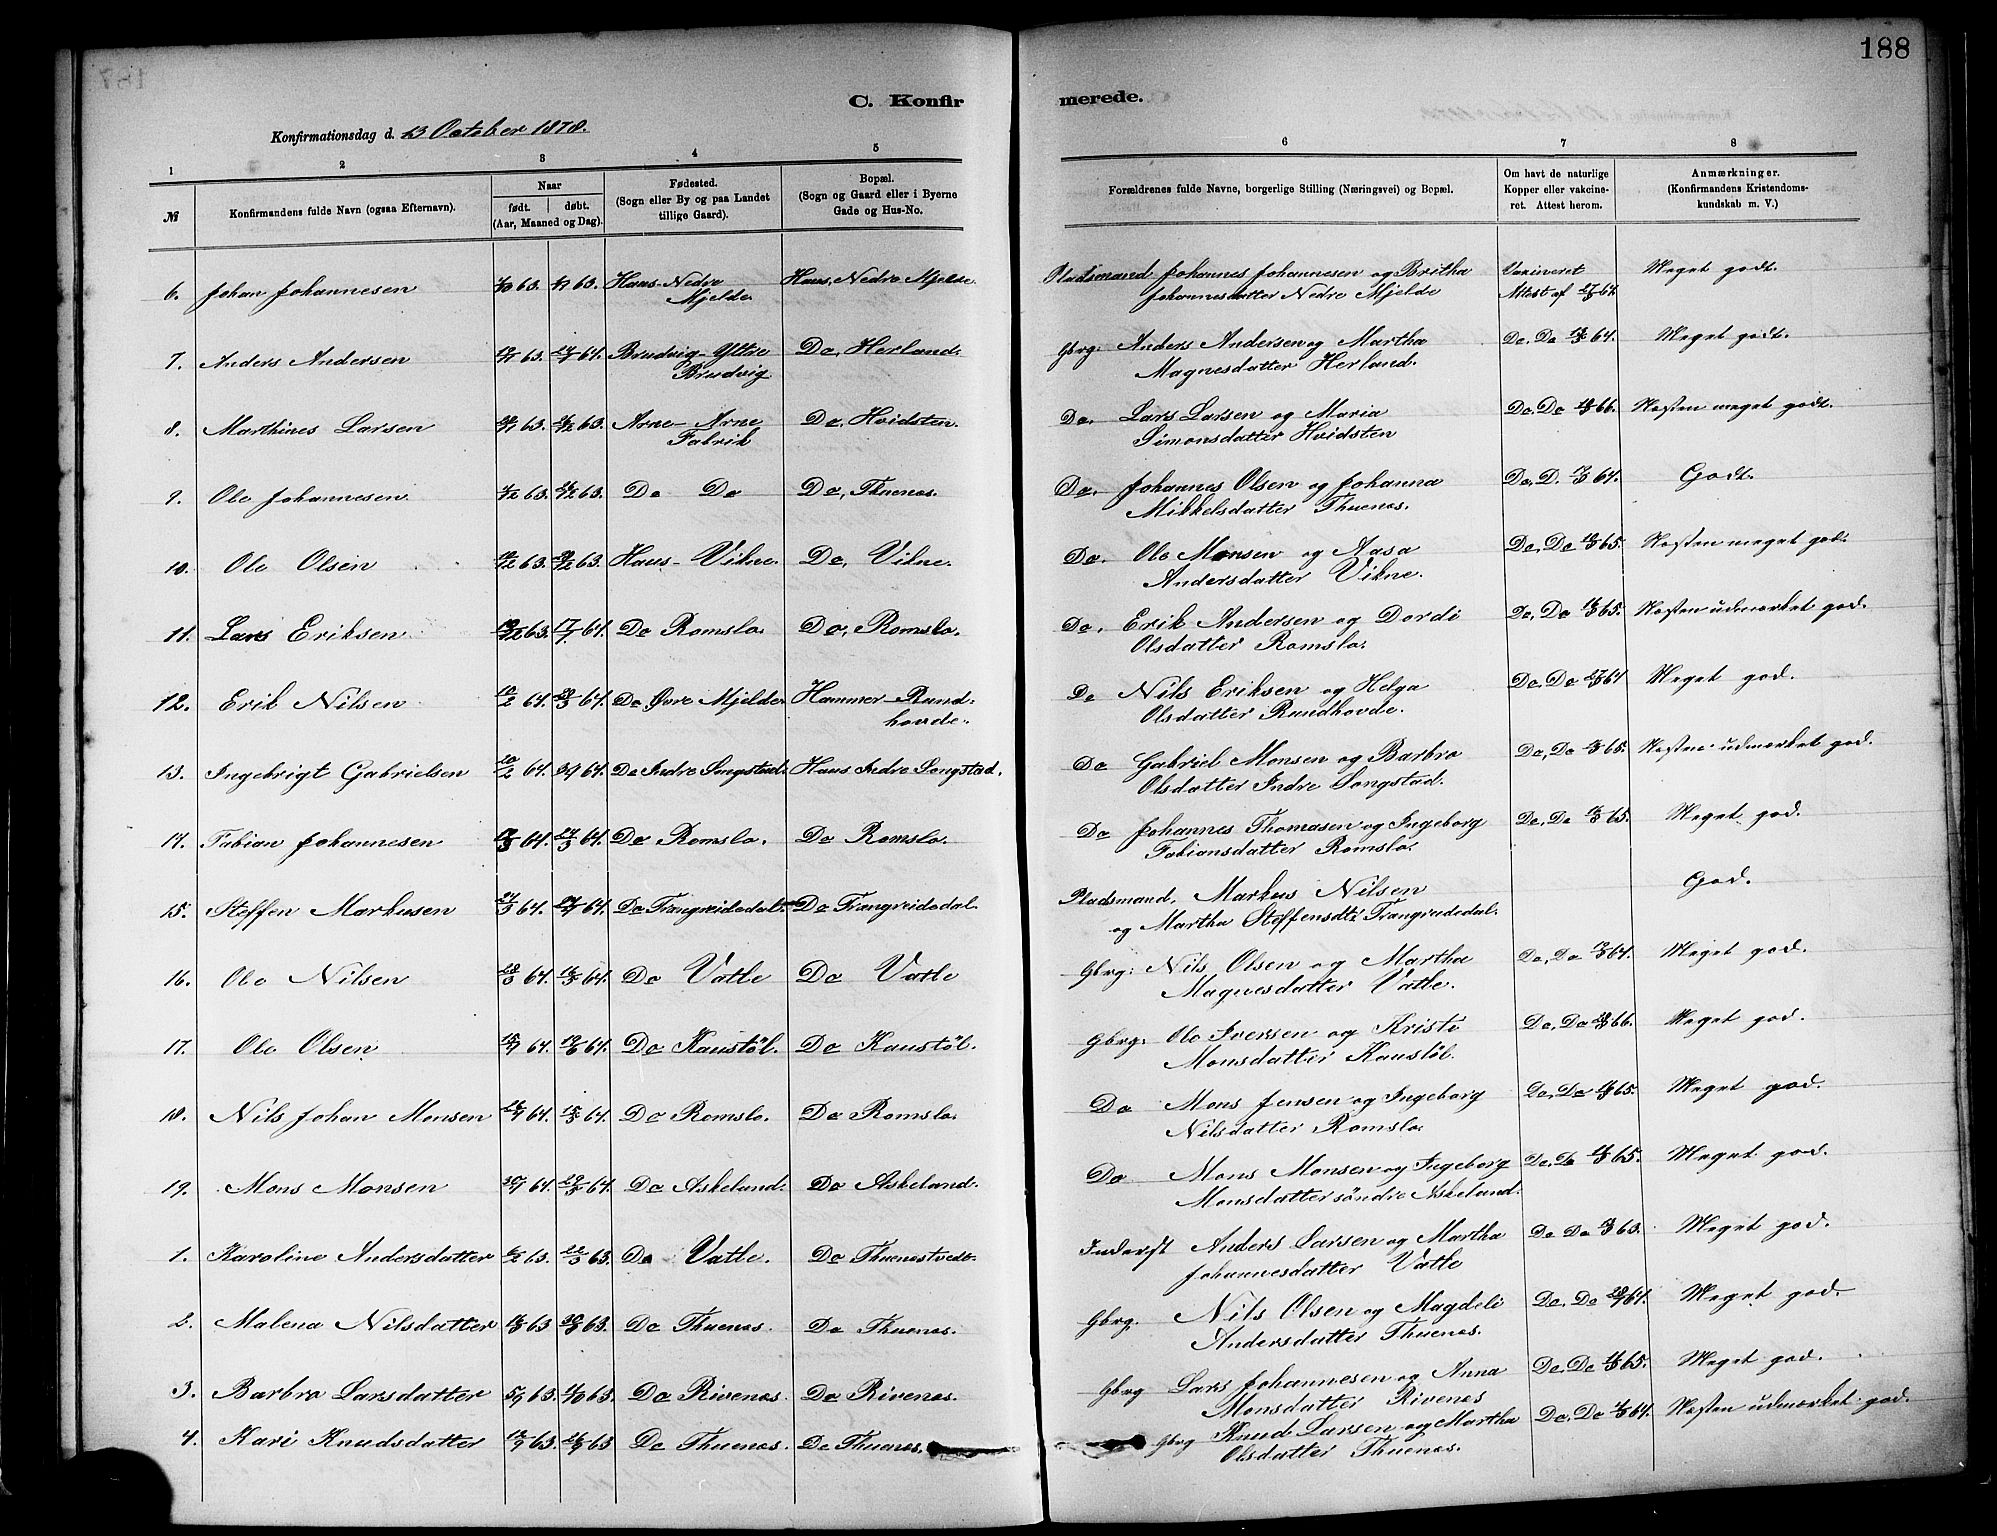 188
C. Konfirmerede.
Konfirmationsdag d. 13 October 1878.
1 2 3 4 5 6 7 8
№ Konfirmandens fulde Navn (ogsaa Efternavn). Naar født. døbt. (Aar, Maaned og Dag). Fødested. (Sogn eller By og paa Landet tillige Gaard). Bopæl. (Sogn og Gaard eller i Byerne Gade og Hus-No. Forældrenes fulde Navne, borgerlige Stilling (Næringsvei) og Bopæl. Om havt de naturlige Kopper eller vakcineret. Attest herom. Anmærkninger. (Konfirmandens Kristendomskundskab m. V.)
6. Johan Johannesen 63. 63. Haus-Nedre Mjelde. Haus, Nedre Mjelde. Pladsmand Johannes Johannesen og Britha Johannesdatter Nedre Mjelde Vakcineret Attest af Meget godt.
7. Anders Andersen 63. 64. Brudvig-Yttre Brudvig Do, Herland. Gbrg. Anders Andersen og Martha Magnesdatter Herland. Do. Do 64. Meget godt.
8. Marthines Larsen 63. 63. Arne-Arne Fabrik Do, Hvidsten. Do. Lars Larsen og Maria Simonsdatter Hvidsten Do, Do 66. Næsten meget godt.
9. Ole Johannesen 63. 63. Do Do Do, Thuenæs. Do. Johannes Olsen og Johanna Mikkelsdatter Thuenæs. Do, D. 64. Godt.
10. Ole Olsen 63. 63. Haus-Vikne. Do, Vikne. Do. Ole Monsen og Aasa Andersdatter Vikne. Do, Do 65. Næsten meget god.
11. Lars Eriksen 63. 17/1 64. Do Romslo. Do, Romslo. Do. Erik Andersen og Dordi Olsdatter Romslo. Do, Do 65. Næsten udmærket god.
12. Erik Nilsen 64. 64. Do Øvre Mjelde. Hammer-Rundhovde. Do Nils Eriksen og Helga Olsdatter Rundhovde. Do, Do 64 Meget god.
13. Ingebrigt Gabrielsen 64. 64. Do Indre Songstad. Haus Indre Songstad. Do Gabriel Monsen og Barbro Olsdatter Indre Songstad. Do, Do 65. Næsten udmærket god.
14. Fabian Johannesen 64. 64. Do Romslo. Do Romslo. Do Johannes Thomasen og Ingeborg Fabiansdatter Romslo. Do, Do 65. Meget god.
15. Steffen Markusen 64. 64. Do Trængreidedal. Do Trængreidedal. Pladsmand, Markus Nilsen og Martha Steffensdtr Trængreidedal. God.
16. Ole Nilsen 64. 64. Do Vatle Do Vatle Gbrg: Nils Olsen og Martha Magnesdatter Vatle. Do, Do 64. Meget god.
17. Ole Olsen 64. 64. Do Kaustöl. Do Kaustöl. Gbrg: Ole Iversen og Kristi Monsdatter Kaustöl. Do, Do 66. Meget god.
18. Nils Johan Monsen 64. 64. Do Romslo. Do Romslo. Do Mons Jensen og Ingeborg Nilsdatter Romslo. Do, Do 65. Meget god.
19. Mons Monsen 64. 64. Do Askeland. Do Askeland. Do Mons Monsen og Ingeborg Monsdatter söndre Askeland. Do, Do 65. Meget god.
1. Karoline Andersdatter 63. 63. Do Vatle. Do Thuenestvedt. Inderst Anders Larsen og Martha Johannesdatter Vatle Do Do 63. Meget god.
2. Malena Nilsdatter 63 63. Do Thuenæs. Do Thuenæs. Gbrg. Nils Olsen og Magdeli Andersdatter Thuenæs. Do, Do 64. Meget god.
3. Barbro Larsdatter 5/9 63. 63. Do Rivenæs. Do Rivenæs. Gbrg Lars Johannesen og Anna Monsdatter Rivenæs Do, Do 65. Meget god.
4. Kari Knudsdatter 63. 63 Do Thuenæs. Do Thuenæs. Gbrg Knud Larsen og Martha Olsdatter Thuenæs. Do, Do 64. Næsten udmærket god.